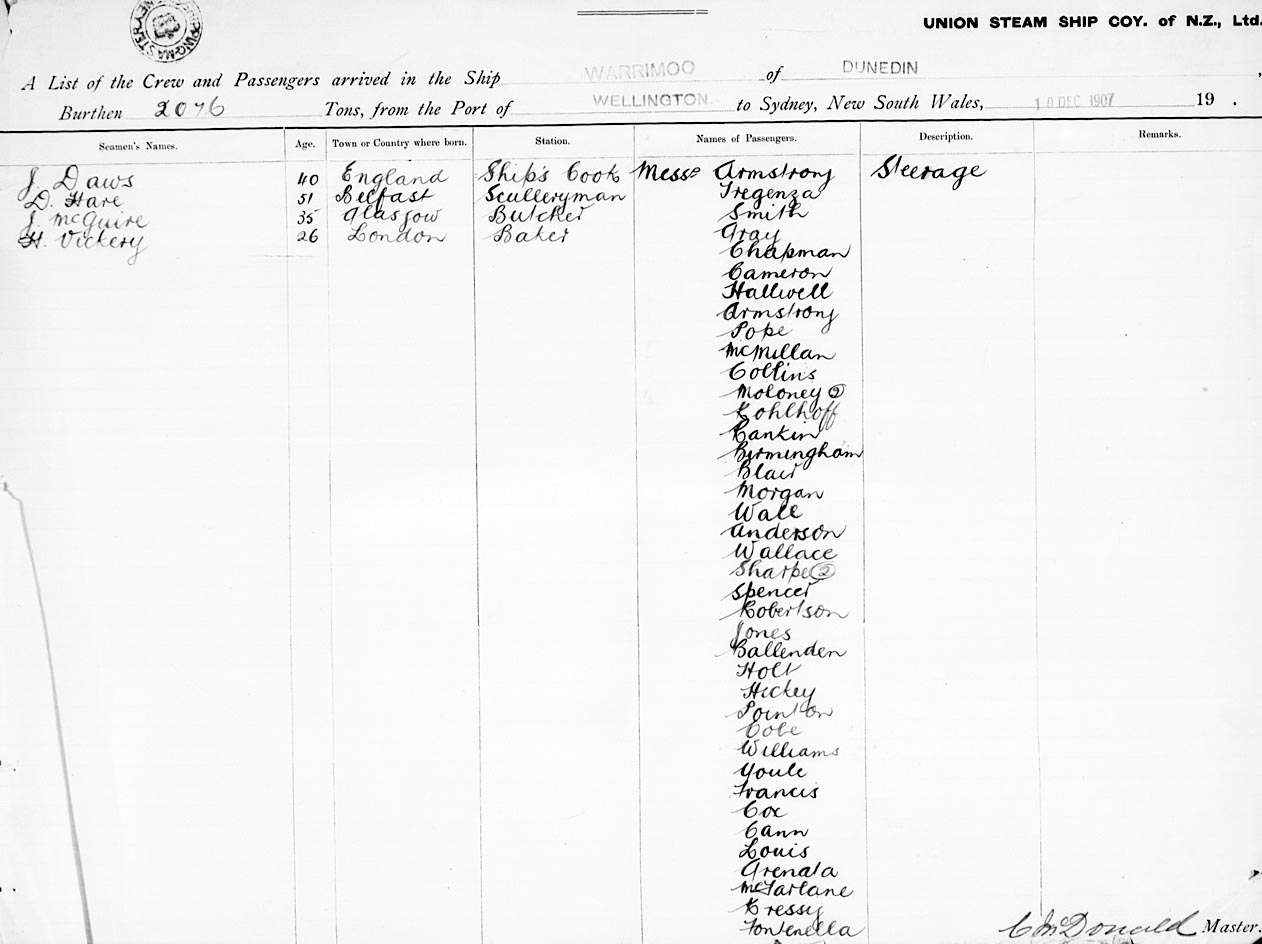 UNION STEAM SHIP COY. of N.Z., Ltd.
A List of the Crew and Passengers arrived in the Ship WARRIMOO of DUNEDIN,
Burthen 2076 Tons, from the Port of WELLINGTON. to Sydney, New South Wales, 10 DEC 1907 19 .
Seamen's Names. Age. Town or Country where born. Station. Names of Passengers. Description. Remarks.
J. Daws 40 England Ship's Cook Messrs Armstrong Steerage
D. Hare 51 Belfast Sculleryman Tregenza
J. McGuire 35 Glasgow Butcher Smith
H. Vickery 26 London Baker Gray
Chapman
Cameron
Halliwell
Armstrong
Pope
McMillan
Collins
Moloney 2
Kohlhoff
Rankin
Birmingham
Blair
Morgan
Wall
Anderson
Wallace
Sharpe 2
Spencer
Robertson
Jones
Ballenden
Holt
Hickey
Pointon
Cole
Williams
Youle
Francis
Cox
Cann
Louis
Grenata
McFarlane
Kressy
Fontenella
C McDonald Master.